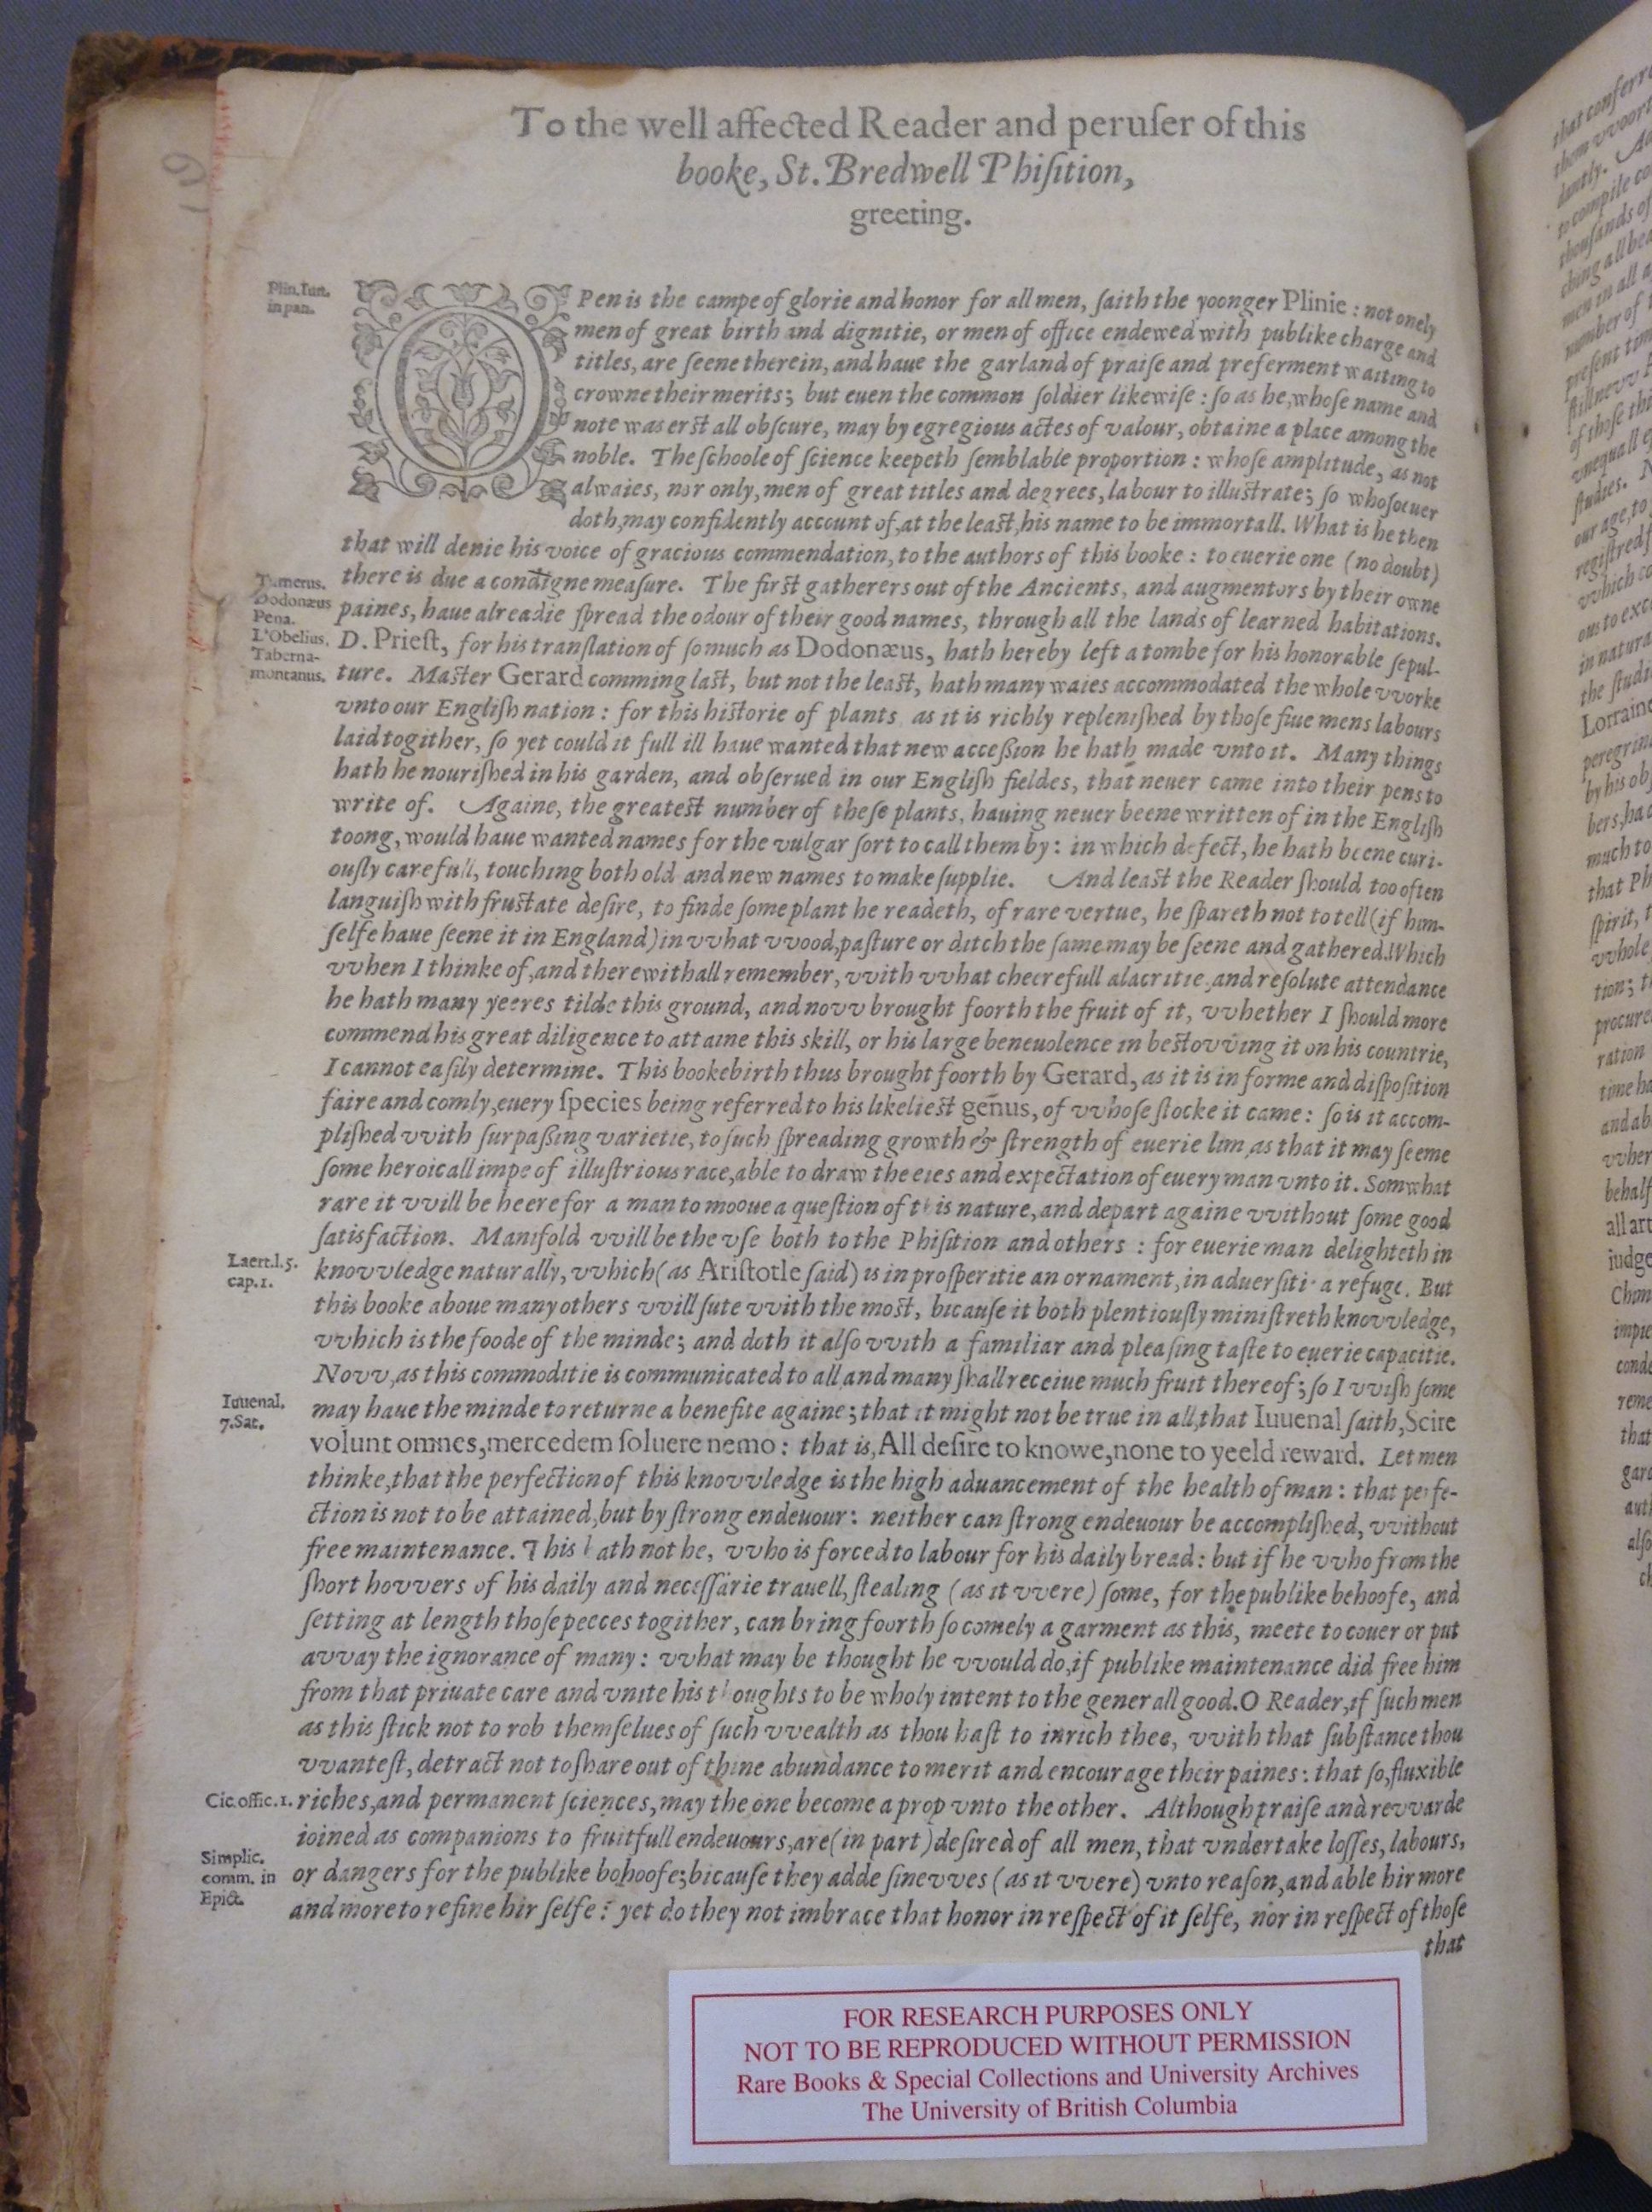 To the well affected Reader and peruſer of this
booke, St. Bredwell Phiſition,
greeting.
Plin. Iun.
in pan.
OPen is the campe of glorie and honor for all men, ſaith the yoonger Plinie: not onely
men of great birth and dignitie, or men of office endewed with publike charge and
titles, are ſeene therein, and haue the garland of praiſe and preferment waiting to
crowne their merits; but euen the common ſoldier likewiſe: ſo as he, whoſe name and
note was erſt all obſcure, may by egregious actes of valour, obtaine a place among the
noble. The ſchoole of ſcience keepeth ſemblable proportion: whoſe amplitude, as not
alwaies, nor only, men of great titles and degrees, labour to illuſtrate; ſo whoſoeuer
doth, may confidently account of, at the leaſt, his name to be immortall. What is he then
that will denie his voice of gracious commendation, to the authors of this booke: to euerie one (no doubt)
there is due a condigne meaſure. The firſt gatherers out of the Ancients, and augmentors by their owne
paines, haue alreadie ſpread the odour of their good names, through all the lands of learned habitations.
Turnerus.
Dodonæus
Pena.
L'Obelius.
Taberna-
montanus.
D. Prieſt, for his tranſlation of ſo much as Dodonæus, hath hereby left a tombe for his honorable ſepul-
ture. Maſter Gerard comming laſt, but not the leaſt, hath many waies accommodated the whole vvorke
vnto our Engliſh nation: for this hiſtorie of plants as it is richly repleniſhed by thoſe fiue mens labours
laid togither, ſo yet could it full ill haue wanted that new acceſſion he hath made vnto it. Many things
hath he nouriſhed in his garden, and obſerued in our Engliſh fieldes, that neuer came into their pens to
write of. Againe, the greateſt number of theſe plants, hauing neuer beene written of in the Engliſh
toong, would haue wanted names for the vulgar ſort to call them by: in which defect, he hath beene curi-
ouſly carefull, touching both old and new names to make ſupplie. And leaſt the Reader ſhould too often
languiſh with fruſtate deſire, to finde ſome plant he readeth, of rare vertue, he ſpareth not to tell (if him-
ſelfe haue ſeene it in England) in vvhat vvood, paſture or ditch the ſame may be ſeene and gathered. Which
vvhen I thinke of, and therewithall remember, vvith vvhat cheerefull alacritie, and reſolute attendance
he hath many yeeres tilde this ground, and novv brought foorth the fruit of it, vvhether I ſhould more
commend his great diligence to attaine this skill, or his large beneuolence in beſtovving it on his countrie,
I cannot eaſily determine. This bookebirth thus brought foorth by Gerard, as it is in forme and diſpoſition
faire and comly, euery ſpecies being referred to his likelieſt genus, of vvhoſe ſtocke it came: ſo is it accom-
pliſhed vvith ſurpaſſing varietie, to ſuch ſpreading growth & ſtrength of euerie lim, as that it may ſeeme
ſome heroicall impe of illuſtrious race, able to draw the eies and expectation of euery man vnto it. Somwhat
rare it vvill be heere for a man to mooue a queſtion of this nature, and depart againe vvithout ſome good
ſatisfaction. Manifold vvill be the vſe both to the Phiſition and others: for euerie man delighteth in
Laert. l. 5.
cap. 1.
knovvledge naturally, vvhich (as Ariſtotle ſaid) is in proſperitie an ornament, in aduerſitie a refuge. But
this booke aboue many others vvill ſute vvith the moſt, bicauſe it both plentiouſly miniſtreth knovvledge,
vvhich is the foode of the minde; and doth it alſo vvith a familiar and pleaſing taſte to euerie capacitie.
Novv, as this commoditie is communicated to all, and many ſhall receiue much fruit thereof; ſo I vviſh ſome
Iuuenal.
7. Sat.
may haue the minde to returne a benefite againe; that it might not be true in all, that Iuuenal ſaith, Scire
volunt omnes, mercedem ſoluere nemo: that is, All deſire to knowe, none to yeeld reward. Let men
thinke, that the perfection of this knovvledge is the high aduancement of the health of man: that perfe-
ction is not to be attained, but by ſtrong endeuour: neither can ſtrong endeuour be accompliſhed, vvithout
free maintenance. This hath not he, vvho is forced to labour for his daily bread: but if he vvho from the
ſhort hovvers of his daily and neceſſarie trauell, ſtealing (as it vvere) ſome, for the publike behoofe, and
ſetting at length thoſe peeces togither, can bring foorth ſo comely a garment as this, meete to couer or put
avvay the ignorance of many: vvhat may be thought he vvould do, if publike maintenance did free him
from that priuate care and vnite his thoughts to be wholy intent to the generall good. O Reader, if ſuch men
as this ſtick not to rob themſelues of ſuch vvealth as thou haſt to inrich thee, vvith that ſubſtance thou
vvanteſt, detract not to ſhare out of thine abundance to merit and encourage their paines: that ſo, fluxible
Cic. offic. 1.
riches, and permanent ſciences, may the one become a prop vnto the other. Although praiſe and revvarde
ioined as companions to fruitfull endeuours, are (in part) deſired of all men, that vndertake loſſes, labours,
Simplic.
comm. in
Epict.
or dangers for the publike bohoofe; bicauſe they adde ſinevves (as it vvere) vnto reaſon, and able hir more
and more to refine hir ſelfe: yet do they not imbrace that honor in reſpect of it ſelfe, nor in reſpect of thoſe
that
FOR RESEARCH PURPOSES ONLY
NOT TO BE REPRODUCED WITHOUT PERMISSION
Rare Books & Special Collections and University Archives
The University of British Columbia